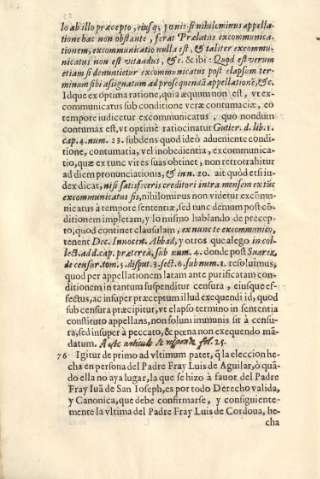 lo ab illo præcepto, eiusq; ponis: si nihilominus appellatione hac non obstante, ferat Prælatus excommunica-
tionem, excommunicatio nulla est, & taliter excommu-
nicatus non est vitandus, &c. & ibi: Quod est verum
etiam si denuntietur excommunicatus post elapsum ter-
minum sibi assignatum ad prosequendā appellationē, &c.
Idque ex optima ratione, quia æquum non est, vt ex-
communicatus sub conditione veræ contumaciæ, eo
tempore iudicetur excommunicatus, quo nondum
contumax est, vt optimè ratiocinatur Gutier. d. lib. 1.
cap. 4. num. 23. subdens quod ideò adueniente condi-
tione, contumatia, vel inobedientia, excommunica-
tio, quæ ex tunc vires suas obtinet, non retrotrahitur
ad diem pronunciationis, & inn. 20. ait quòd etsi iu-
dex dicat, nisi satisfeceris creditori intra mensem ex tūc
excommunicatus sis, nihilominus non videtur excōmu-
nicatus à tempore sententiæ, sed tunc demum post cō-
ditionem impletam, y lo mismo hablando de precep-
to, quod continet clausulam, ex nunc te excommunico,
tenent Dec. Innocen. Abbad, y otros que alego in col-
lect. ad d. cap. præterea, sub num. 4. donde post Suarez,
de censur. tom. 5. disput. 3. sect. 6. sub num. 1. resoluimus,
quod per appellationem latam ante purificatam con-
ditionem in tantum suspenditur censura, eiusque ef-
fectus, ac insuper præceptum illud exequendi id, quod
sub censura præcipitur, vt elapso termino in sententia
constituto appellans, non solum immunis sit à censu-
ra, sed insuper à peccato, & pœna non exequendo mā-
datum. A este articulo se responde fol. 25.
76 Igitur de primo ad vltimum patet, q̄ la eleccion he-
cha en persona del Padre Fray Luis de Aguilar, ò quā-
do ella no aya lugar, la que se hizo à fauor del Padre
Fray Iuā de San Ioseph, es por todo Derecho valida,
y Canonica, que debe confirmarse, y consiguiente-
mente la vltima del Padre Fray Luis de Cordoua, he-
cha